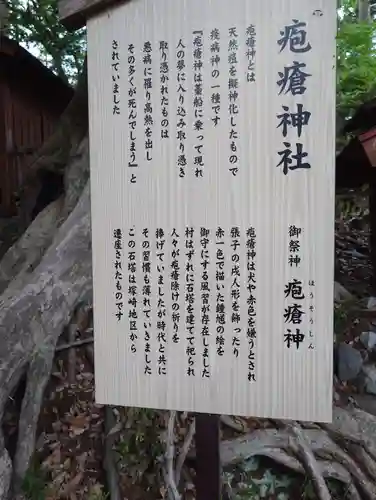 疱瘡神社
御祭神 疱瘡神
ほうそうしん
疱瘡神とは
天然痘を擬神化したもので
疫病神の一種です
『疱瘡神は藁船に乗って現れ
人の夢に入り込み取り憑き
取り憑かれたものは
悪病に罹り高熱を出し
その多くが死んでしまう』と
されていました
疱瘡神は犬や赤色を嫌うとされ
張子の戌人形を飾ったり
赤一色で描いた鍾馗の絵を
御守にする風習が存在しました
村はずれに石塔を建てて祀られ
人々が疱瘡除けの祈りを
捧げていましたが時代と共に
その習慣も薄れていきました
この石塔は塚崎地区から
遷座されたものです